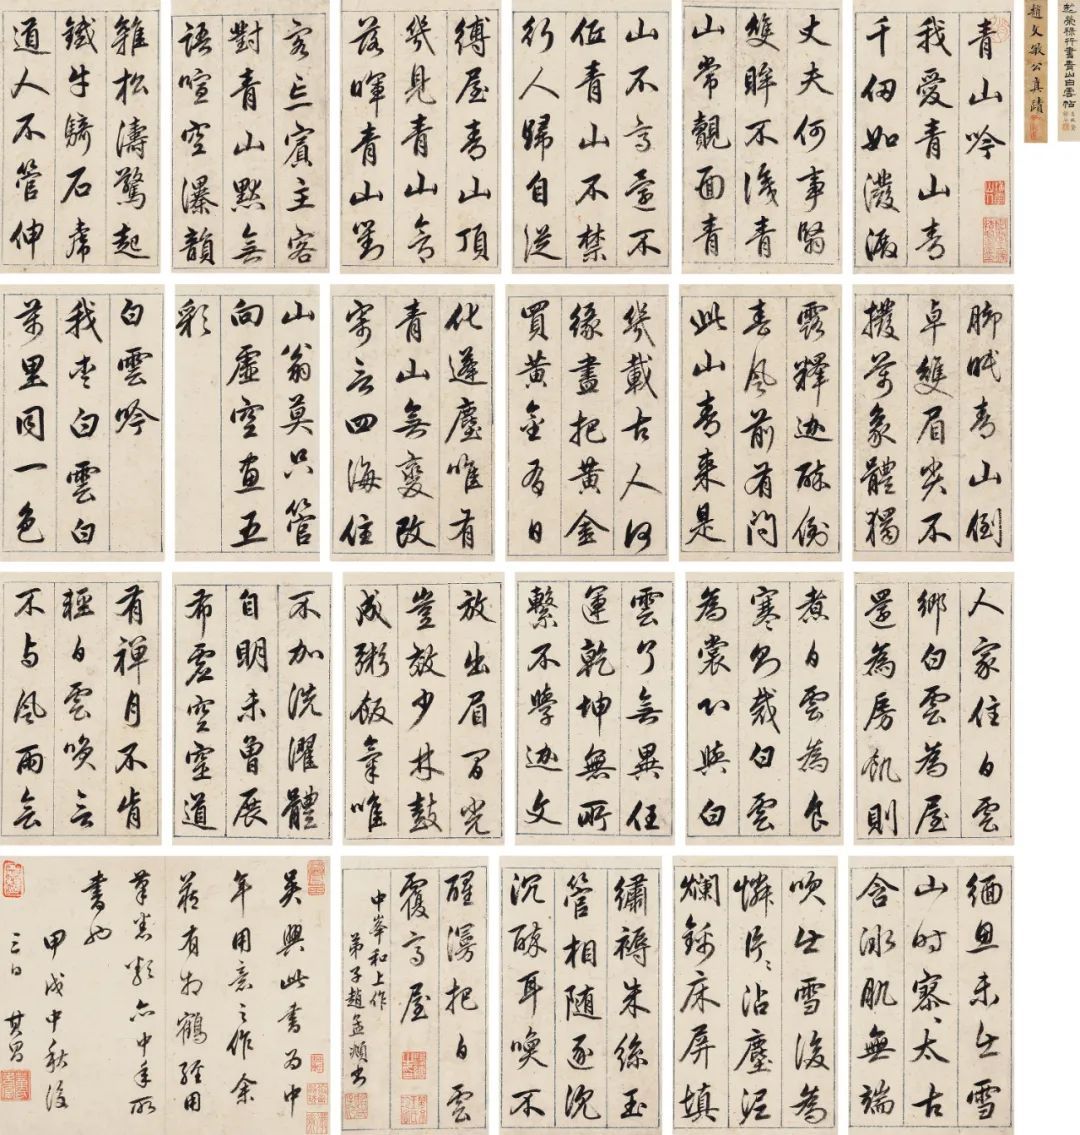 趙榮祿行書青山白雲帖
趙文敏公真蹟
青山吟
我愛青山青
千仞如潑澱
丈夫何事翳
雙眸不識青
山常覿面青
山不高還不
低青山不禁
行人歸自從
縛屋青山頂
幾見青山含
落暉青山對
客忘賓主客
對青山默無
語喧空瀑韻
雜松濤驚起
鐵牛騎石虎
道人不管伸
腳眠青山倒
卓雙眉尖不
撥萬象體獨
露釋迦醉倒
春風前有問
此山青來是
幾載古人何
緣盡把黃金
買黃金有日
化遂塵唯有
青山無變改
寄言四海住
山翁莫只管
向虛空畫五
彩
白雲吟
我愛白雲白
萬里同一色
人家住白雲
鄉白雲為屋
還為房飢則
煮白雲為食
寒即裁白雲
為裳心與白
雲了無異任
運乾坤無所
繫不學迦文
放出眉間光
豈效少林鼓
成粥飯氣唯
不加洗濯體
自明未曾展
布虛空窒道
有禪月不肯
輕白雲喚言
不與風雨會
緬思未生雪
山時寥寥太古
含冰肌無端
吹生雪後為
憐片片沾塵泥
爛錦床屏填
繡褥朱絲玉
管相隨逐沉
沉醉耳喚不
醒漫把白雲
覆高屋
中峯和上作
弟子趙孟頫書
吳興此書為中
年用意之作余
藏有相鶴經用
筆悉類亦中年所
書也
甲戌中秋後
三日 其昌